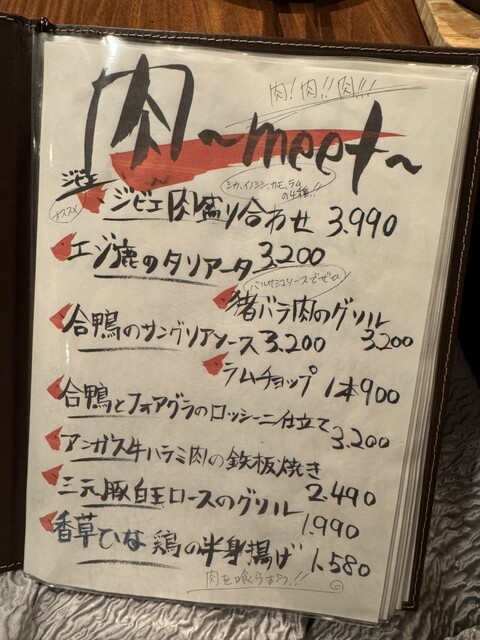 肉!肉!!肉!!!
肉~meet~
ジビエ
シカ、イノシシ、カモ、ラム
の4種!!
オススメ
ジビエ肉盛り合わせ 3.990
エゾ鹿のタリアータ 3.200
バルサミコソースでぜひ
猪バラ肉のグリル
3.200
合鴨のサングリアソース 3.200
ラムチョップ 1本900
合鴨とフォアグラのロッシーニ仕立て
3.200
アンガス牛ハラミ肉の鉄板焼き
2.490
三元豚白王ロースのグリル
1.990
香草ひな鶏の半身揚げ 1.580
肉を喰らおう!!